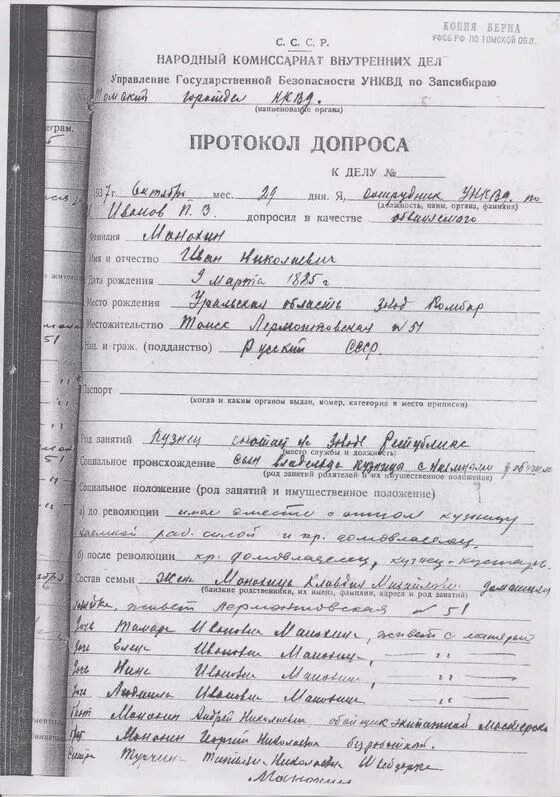 КОПИЯ ВЕРНА
УФСБ РФ ПО ТОМСКОЙ ОБЛ.
С. С. С. Р.
НАРОДНЫЙ КОМИССАРИАТ ВНУТРЕННИХ ДЕЛ
Управление Государственной Безопасности УНКВД по Запсибкраю
Томский горотдел НКВД.
(наименование органа)
ПРОТОКОЛ ДОПРОСА
К ДЕЛУ №
1937 г. октября мес. 29 дня. Я, сотрудник УНКВД по
(должность, наим. органа, фамилия)
Иванов П. З. допросил в качестве обвиняемого
Фамилия Манохин
Имя и отчество Иван Николаевич
Дата рождения 9 марта 1885 г
Место рождения Уральская область завод Камбар
Местожительство Томск Лермонтовская № 51
Нац. и граж. (подданство) Русский СССР.
Паспорт
(когда и каким органом выдан, номер, категория и место приписки)
Род занятий Кузнец завод Республика
(место службы и должность)
Социальное происхождение сын владельца кузницы с
(род занятий родителей и их имущественное положение)
Социальное положение (род занятий и имущественное положение)
а) до революции имел вместе с отцом кузницу
наемной раб. силой и кр. домовладелец
б) после революции кр. домовладелец, кузнец-кустарь.
Состав семьи жена Манохина Клавдия Михайловна домашняя
(близкие родственники, их имена, фамилии, адреса и род занятий)
хозяйка, живет Лермонтовская № 51
Дочь Тамара Ивановна Манохина, живет с матерью
Дочь Елена Ивановна Манохина, " "
Дочь Нина Ивановна Манохина, " "
Дочь Людмила Ивановна Манохина " "
Брат Манохин Андрей Николаевич обойщик экипажной мастерской
Брат Манохин Георгий Николаевич безработный.
Сестра Татьяна Николаевна Швейцарка
Манохин